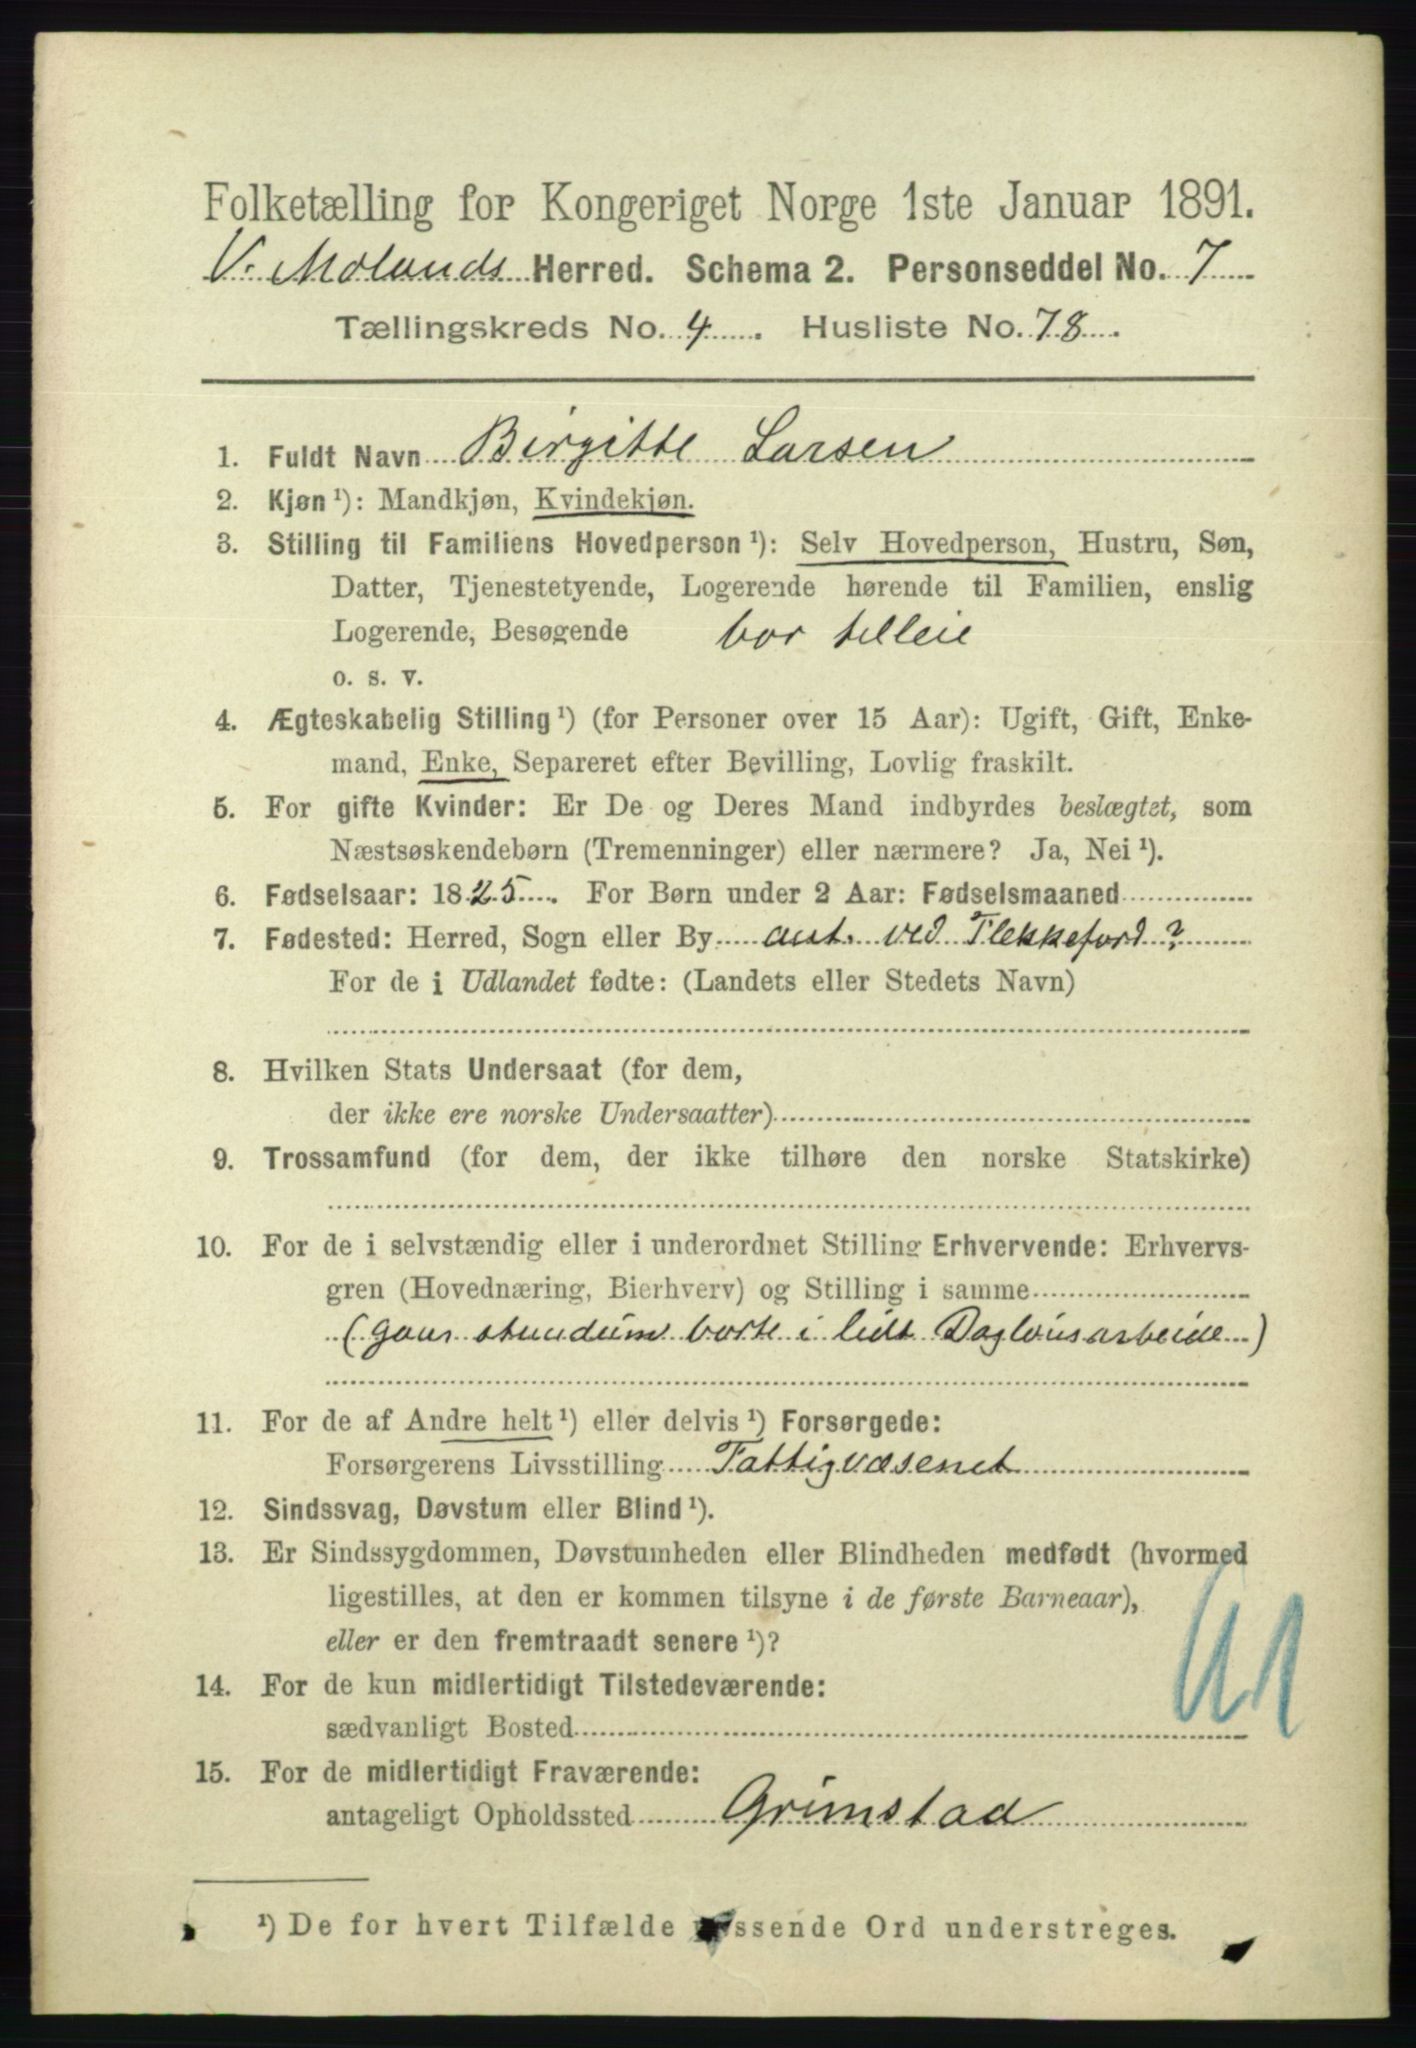 Folketælling for Kongeriget Norge 1ste Januar 1891.
V. Molands Herred. Schema 2. Personseddel No. 7
Tællingskreds No. 4. Husliste No. 78.
1. Fuldt Navn Birgitte Larsen
2. Kjøn¹): Mandkjøn, Kvindekjøn.
3. Stilling til Familiens Hovedperson¹): Selv Hovedperson, Hustru, Søn,
Datter, Tjenestetyende, Logerende hørende til Familien, enslig
Logerende, Besøgende bor tilleie
o. s. v.
4. Ægteskabelig Stilling¹) (for Personer over 15 Aar): Ugift, Gift, Enke-
mand, Enke, Separeret efter Bevilling, Lovlig fraskilt.
5. For gifte Kvinder: Er De og Deres Mand indbyrdes beslægtet, som
Næstsøskendebørn (Tremenninger) eller nærmere? Ja, Nei¹).
6. Fødselsaar: 1825. For Børn under 2 Aar: Fødselsmaaned
7. Fødested: Herred, Sogn eller By ant. ved Flekkefjord?
For de i Udlandet fødte: (Landets eller Stedets Navn)
8. Hvilken Stats Undersaat (for dem,
der ikke ere norske Undersaatter)
9. Trossamfund (for dem, der ikke tilhøre den norske Statskirke)
10. For de i selvstændig eller i underordnet Stilling Erhvervende: Erhvervs-
gren (Hovednæring, Bierhverv) og Stilling i samme
(gaar stundum borte i lidt Daglønsarbeide)
11. For de af Andre helt¹) eller delvis¹) Forsørgede:
Forsørgerens Livsstilling Fattigvæsenet
12. Sindssvag, Døvstum eller Blind¹).
13. Er Sindssygdommen, Døvstumheden eller Blindheden medfødt (hvormed
ligestilles, at den er kommen tilsyne i de første Barneaar),
eller er den fremtraadt senere¹)?
14. For de kun midlertidigt Tilstedeværende:
sædvanligt Bosted
15. For de midlertidigt Fraværende:
antageligt Opholdssted Grimstad
¹) De for hvert Tilfælde passende Ord understreges.